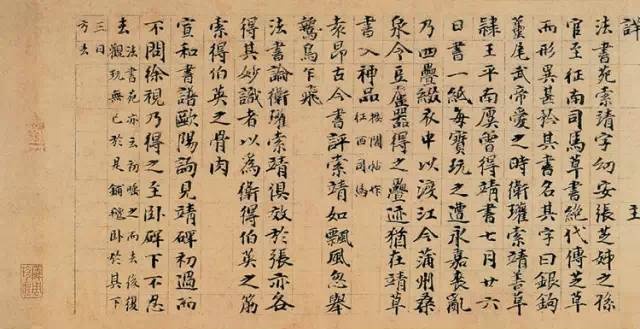 詳 至
法書苑索靖字幼安張芝姉之孫
官至征南司馬草書絕代傳芝草
而形異甚矜其書名其字曰銀鉤
蠆尾武帝愛之時衛瓘索靖善草
隸王平南廙曾得靖書七月廿六
日書一紙每寶玩之遭永嘉喪亂
乃四疊綴衣中以渡江今蒲州桑
泉令豆盧器得之疊迹猶在靖草
書入神品 按閣帖作
征西司馬
袁昂古今書評索靖如飄風忽舉
鷙鳥乍飛
法書論衛瓘索靖俱效於張亦各
得其妙識者以為衛得伯英之筋
索得伯英之骨肉
宣和書譜歐陽詢見靖碑初過而
不問徐視乃得之至卧碑下不忍
去 法書苑亦云初唾之而去後復
觀玩無已於是鋪氊卧於其下
三日
方去